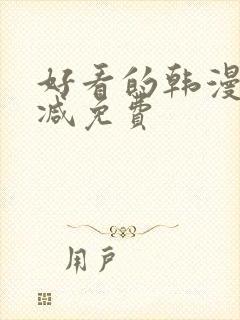 好看的韩漫
减免费
用户